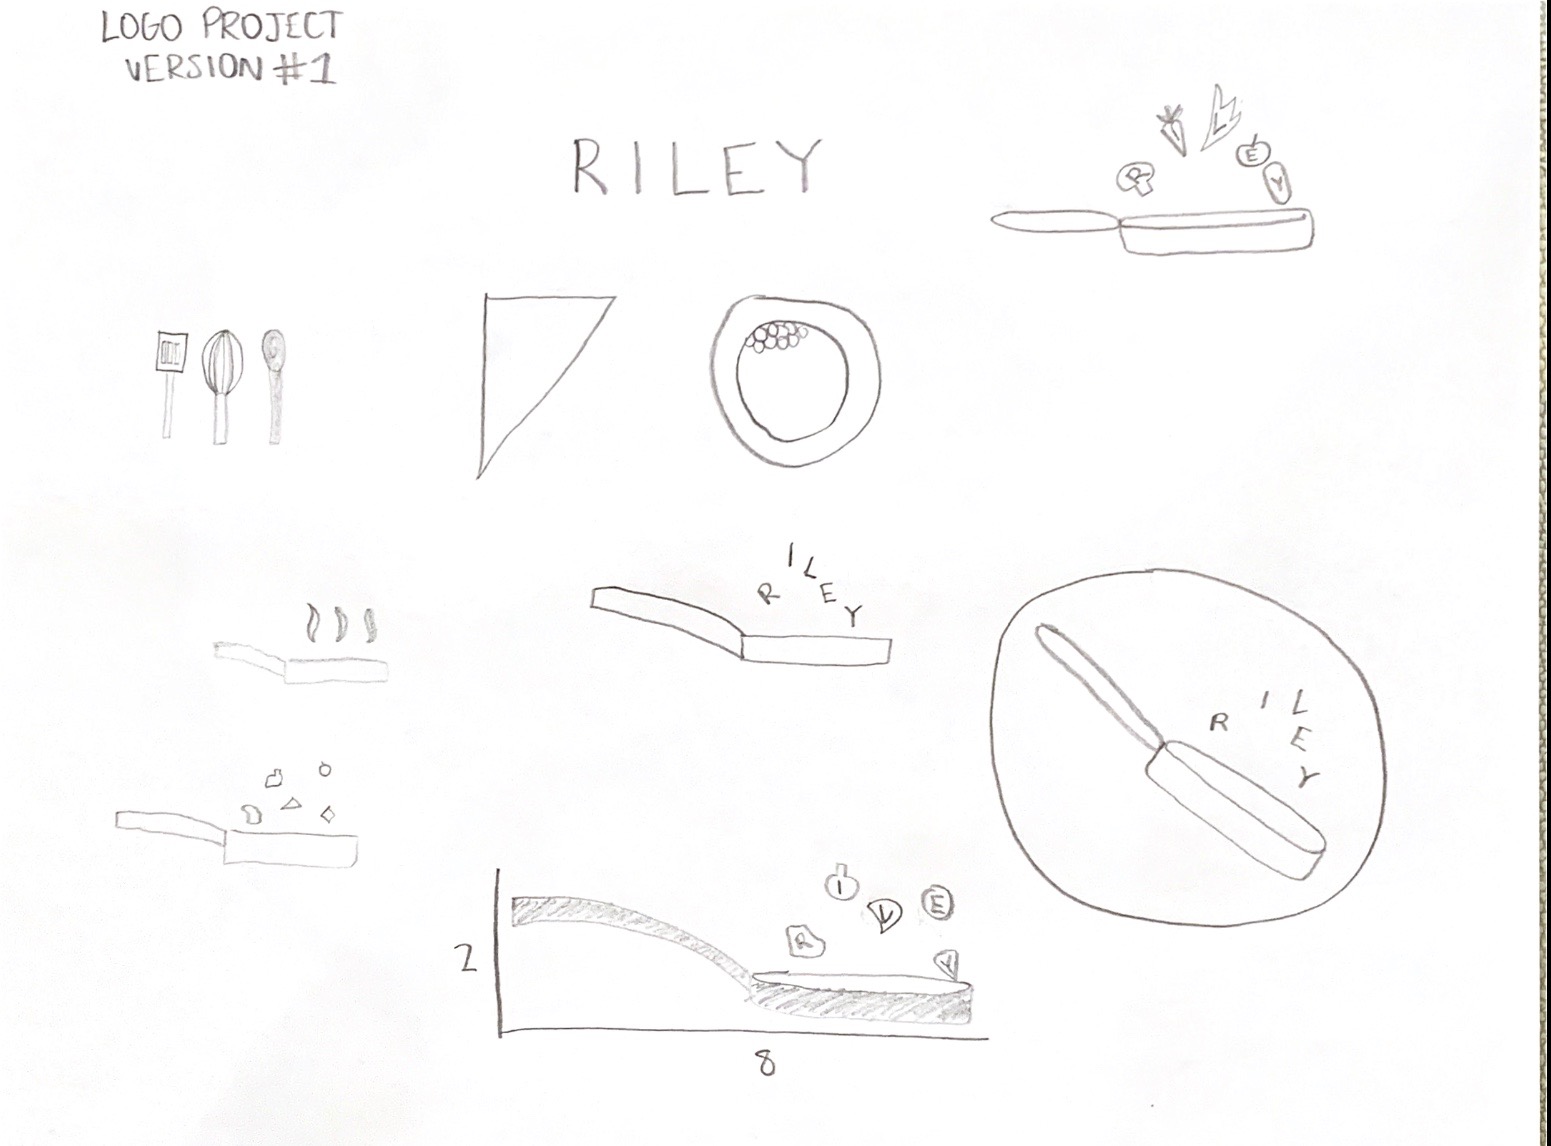 LOGO PROJECT
VERSION #1
RILEY
R I L E Y
R I L E Y
R I L E Y
R I L E Y
2
8